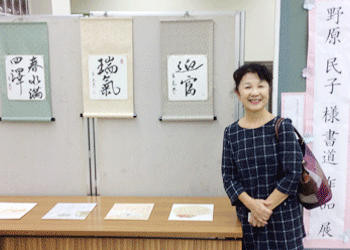 野原民子様書道作品展
迎富
瑞氣
春水満
四澤